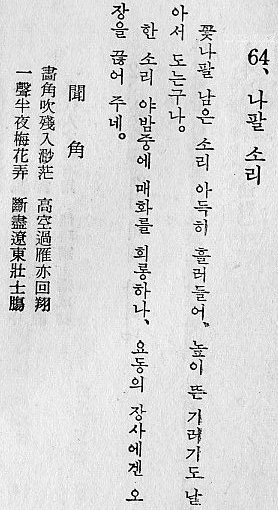 64、나팔 소리
꽃나팔 남은 소리 아득히 흘러들어、높이 뜬 기러기도 날
아서 도는구나。
한 소리 야밤중에 매화를 희롱하나、요동의 장사에겐 오
장을 끊어 주네。
聞角
畵角吹殘入渺茫 高空過雁亦回翔
一聲半夜梅花弄 斷盡遼東壯士膓